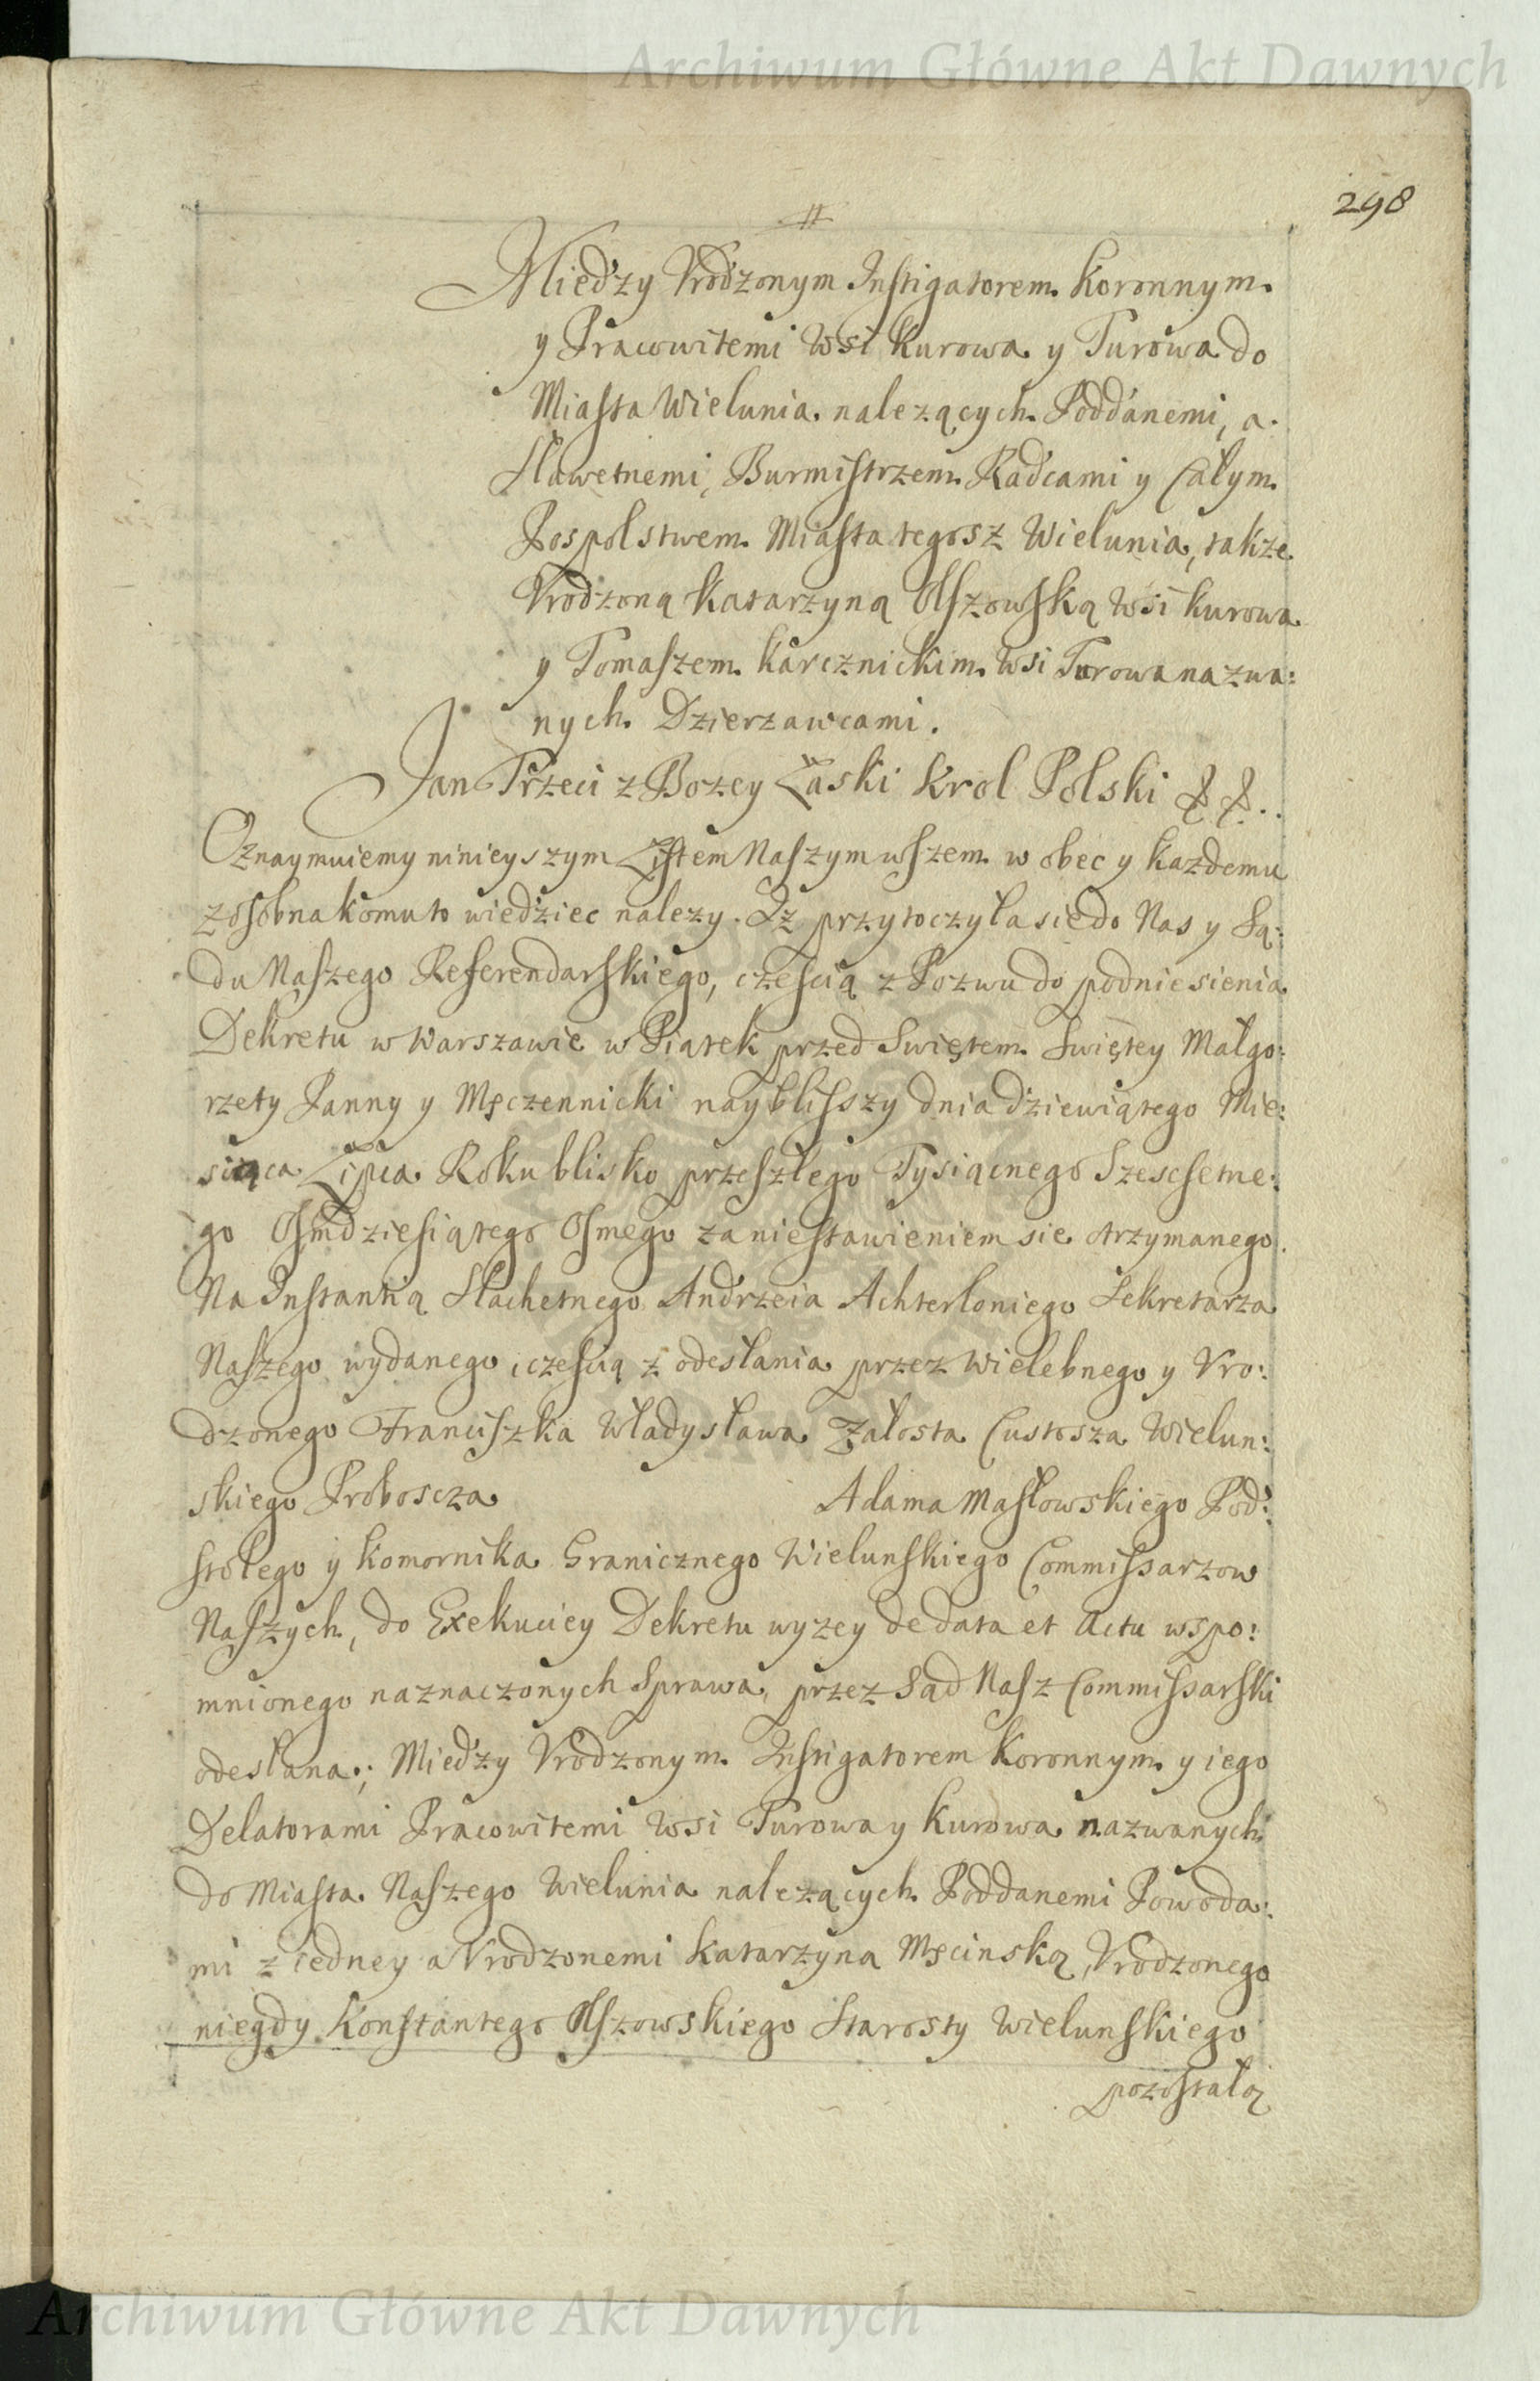 Archiwum Główne Akt Dawnych
298
Między Vrodzonym Instigatorem Koronnym
y Pracowitemi Wsi Kurowa y Turowa do
Miasta Wielunia nalezących Poddanemi, a
Sławetnemi, Burmistrzem Radcami y Całym
Pospolstwem Miasta tegosz Wielunia, takze
Vrodzoną Katarzyną Olszowską Wsi Kurowa
y Tomaszem Karcznickim Wsi Turowa nazwa:
nych Dzierzawcami.
Jan Trzeci z Bozey Łaski Krol Polski &&.
Oznaymuiemy ninieyszym Listem Naszym wszem w obec y kazdemu
zosobna komu to wiedziec nalezy. Iz przytoczyła sie do Nas y Są:
du Naszego Referendarskiego, częscią z Pozwu do podniesienia
Dekretu w Warszawie w Piątek przed Swiętem Swiętey Małgo:
rzety Panny y Męczennicki nayblisszy dnia dziewiątego Mie:
siąca Lipca Roku blisko przeszłego Tysiącnego Szescsetne:
go Osmdziesiątego Osmego za niestawieniem sie otrzymanego
Na Instantią Slachetnego Andrzeia Achterloniego Sekretarza
Naszego wydanego, częscią z odesłania przez Wielebnego y Vro:
dzonego Franciszka Władysława Załosta Custosza Wielun:
skiego Proboscza Adama Masłowskiego Pod:
stolego y Komornika Granicznego Wielunskiego Commissarzow
Naszych, do Exekuciey Dekretu wyzey de data et Actu wspo:
mnionego naznaczonych Sprawa, przez Sad Nasz Commissarski
odesłana; Miedzy Vrodzonym Instigatorem Koronnym y iego
Delatorami Pracowitemi Wsi Turowa y Kurowa nazwanych
do Miasta Naszego Wielunia nalezących Poddanemi Powoda:
mi z iedney a Vrodzonemi Katarzyna Męcinską, Vrodzonego
niegdy Konstantego Olszowskiego Starosty Wielunskiego
pozostałą
Archiwum Główne Akt Dawnych